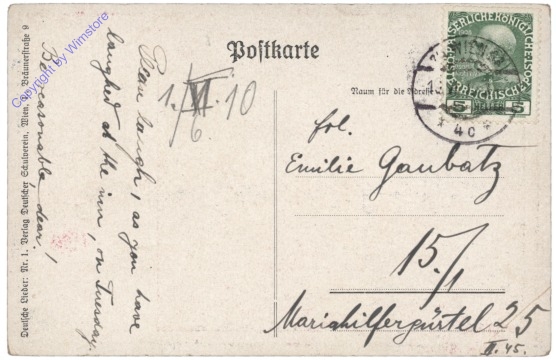 Postkarte
Raum für die Adresse
KAISERLICHE KÖNIGLICHE
ÖSTERREICHISCHE
5 HELLER 5
* 4c *
1./VI. 10
6
Please laugh, as you have
laughed at the inn, on Tuesday.
Be reasonable, dear!
Frl.
Emilie Gaubatz
15/1
Mariahilfergürtel 25
II. 45.
Deutsche Lieder: Nr. 1. Verlag Deutscher Schulverein, Wien, Bräunerstraße 9
Copyright by Wimstore